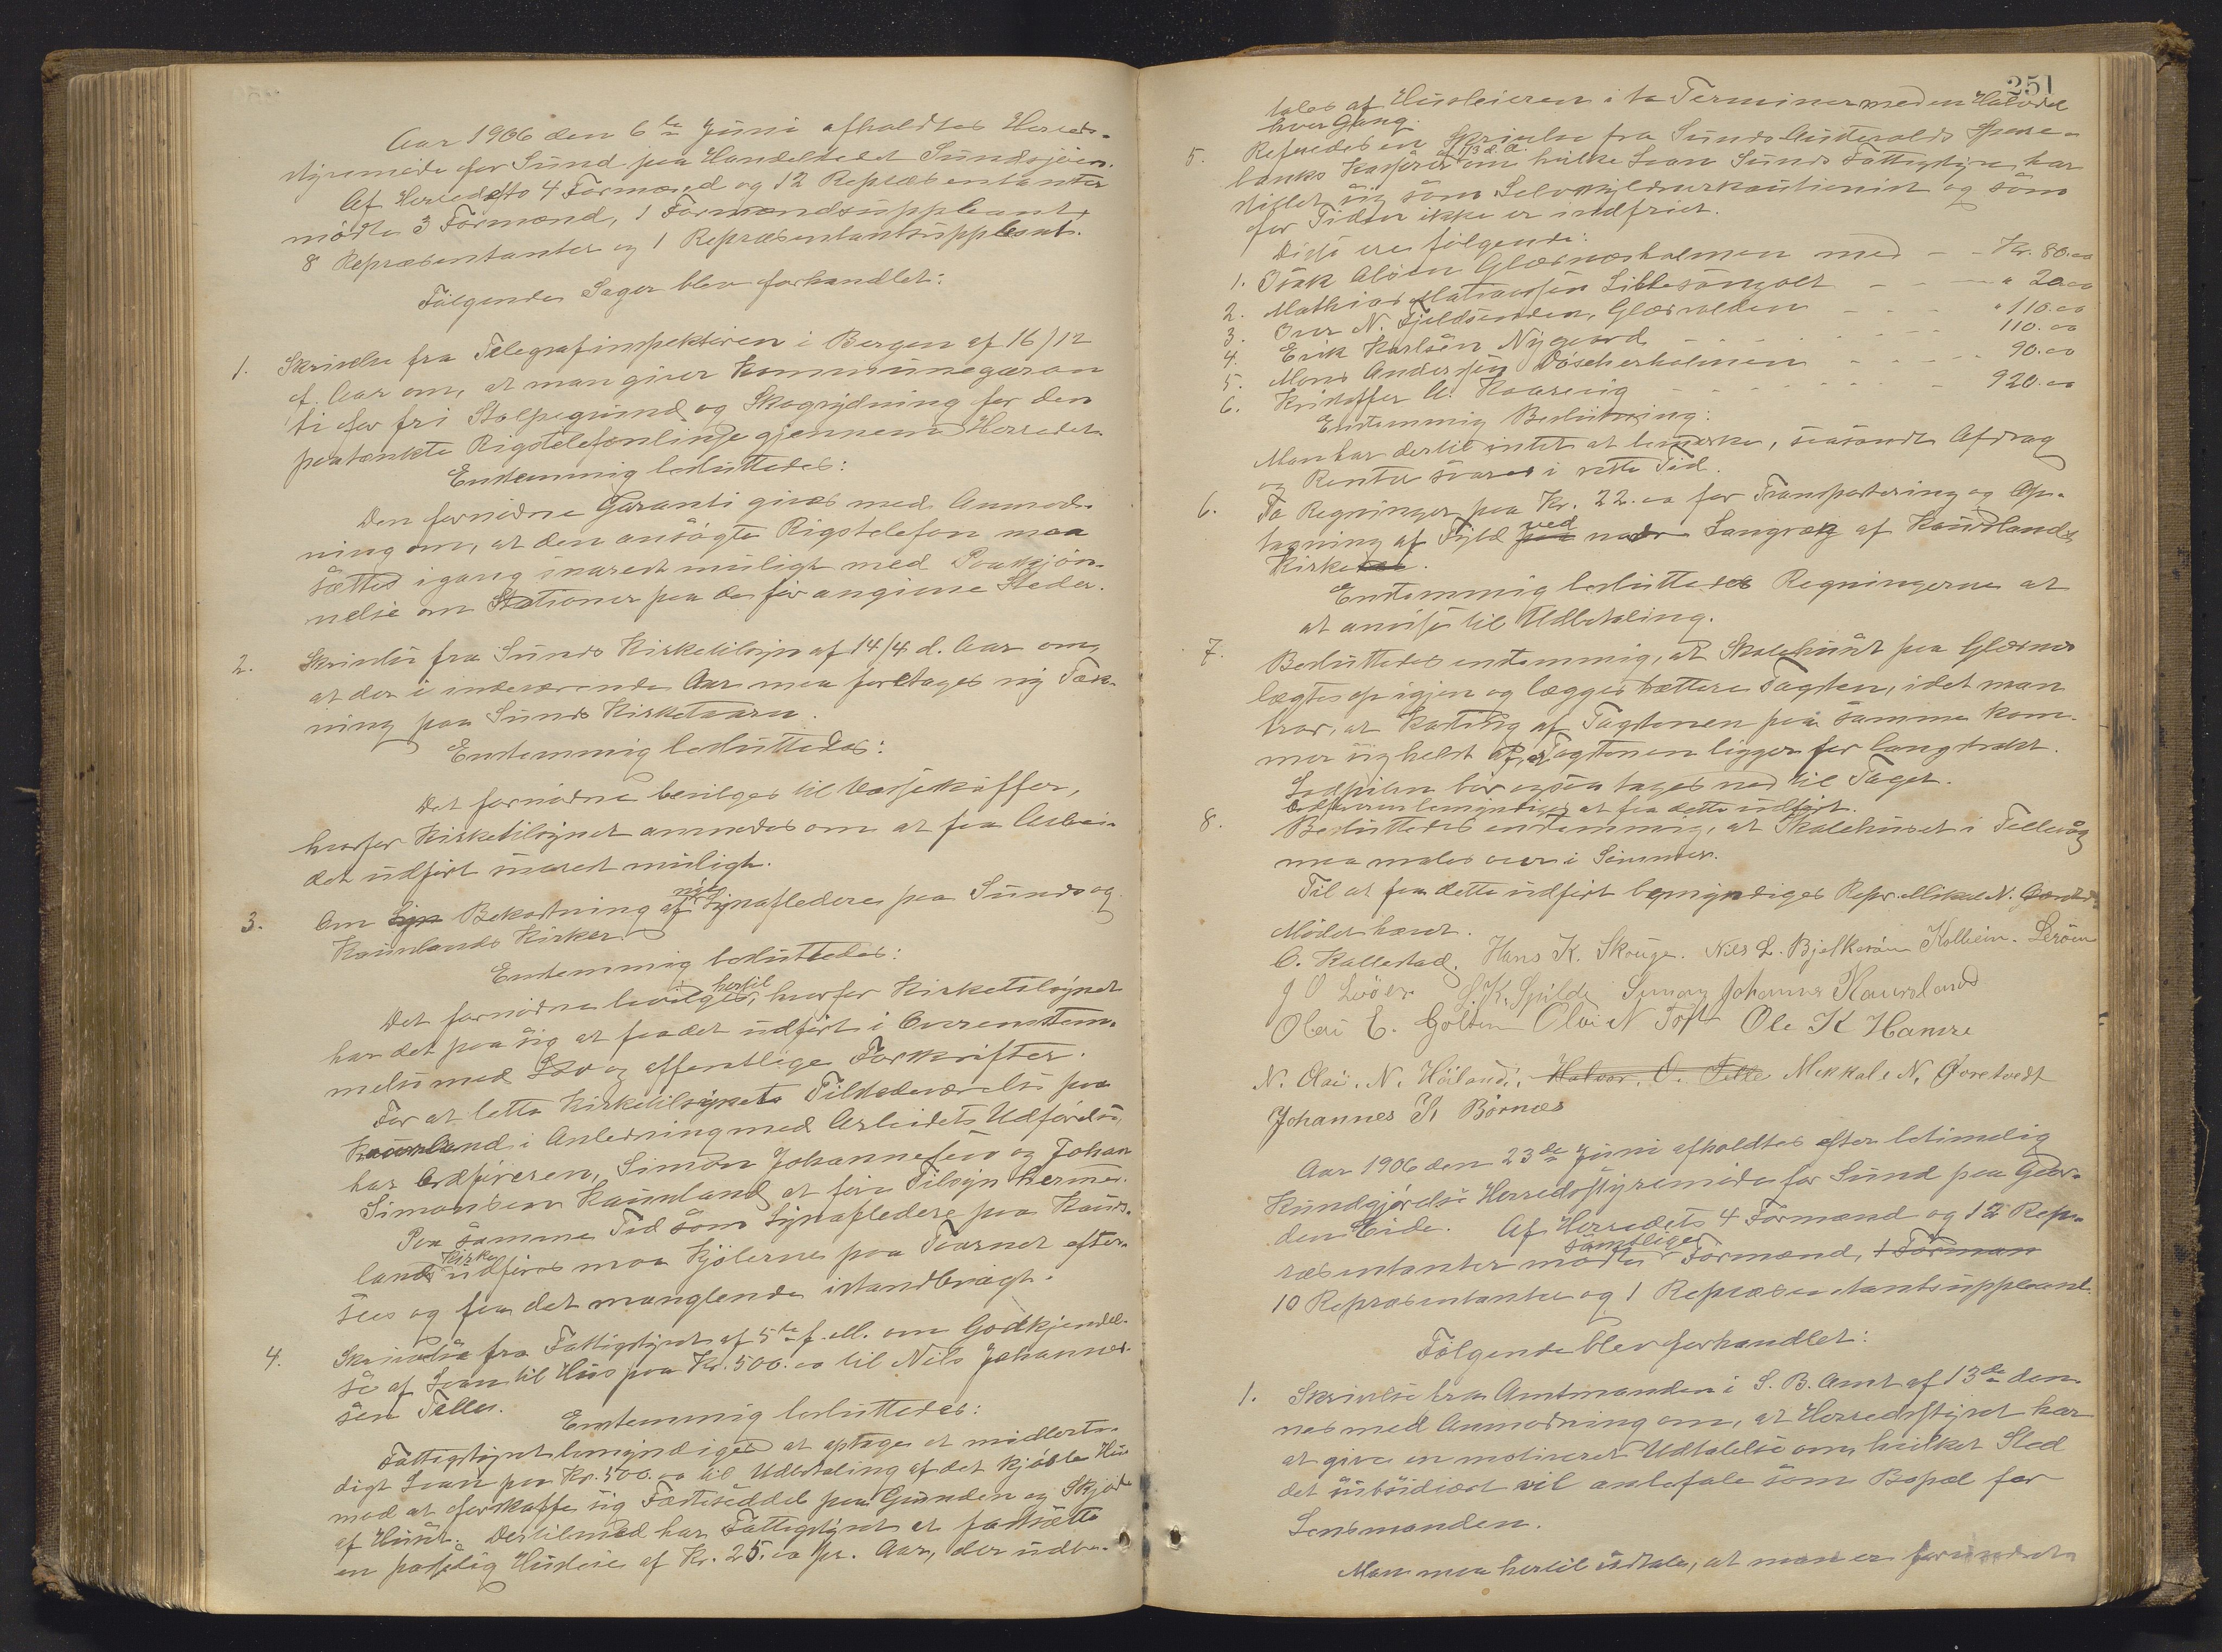 Aar 1906 den 6te Juni afholdtes Herreds-
styremøde for Sund paa Handelstedet Sundsjøen.
Af Herredets 4 Formænd og 12 Repræsentanter
mødte 3 Formænd, 1 Formandsuppleant,
8 Repræsentanter og 1 Repræsentantsuppleant.
Følgende Sager blev forhandlet:
1. Skrivelse fra Telegrafinspektøren i Bergen af 16/12
f. Aar om, at man giver Kommunegaran
ti for fri Stolpegrund og Skogrydning for den
paatænkte Rigstelefonlinje gjennem Herredet.
Enstemmig besluttedes:
Den fornødne Garanti gives med Anmod-
ning om, at den ansøgte Rigstelefon maa
sættes igang snarest muligt med Paaskjøn-
nelse om Stationer paa de før angivne Steder.
2. Skrivelse fra Sunds Kirketilsyn af 14/4 d. Aar om,
at der i indeværende Aar maa foretages ny Tæk-
ning paa Sunds Kirketaarn.
Enstemmig besluttedes:
Det fornødne bevilges til
hvorfor Kirketilsynet anmodes om at faa Arbei-
det udført snarest muligt.
3. Om Syn Bekostning af nye Lynafledere paa Sunds og
Kausland Kirker.
Enstemmig besluttedes:
Det fornødne bevilges hertil, hvorfor Kirketilsynet
har det paa sig at faa det udført i Overenstem-
melse med Lov og offentlige Forskrifter.
For at lette Kirketilsynets Tilstedeværelse paa
Kausland i Anledning med Arbeidets Udførelse,
har Ordføreren, Simon Johannesen og Johan
Simonsen Kausland at føre Tilsyn hermed.
Paa samme Tid som Lynafledere paa Kaus-
lands Kirke udføres maa Kjølerne paa Taarnet efter-
sees og faa det manglende istandbragt.
4. Skrivelse fra Fattigstyret af 5te f. M. om Godkjendel-
se af Laan til Hus paa Kr. 500.00 til Nils Johannes-
sen Telle.
Enstemmig besluttedes:
Fattigstyret bemyndiges at optage et midlerti-
digt Laan paa Kr. 500.00 til Udbetaling af det kjøbte Hus
mod at forskaffe sig Fæsteseddel paa Grunden og Skjøde
af Huset. Dertilmed har Fattigstyret at fastsætte
en passelig Husleie af Kr. 25.00 pr. Aar, der udbe-
251
tales af Husleieren i to Terminer med en Halvdel
hver Gang.
5. Referedes en Skrivelse fra Sunds Austevolds Spare-
banks Kasserer af 1/3 d. A. om hvilke Laan Sunds Fattigstyre har
stillet sig som Selvskyldnerkautionist og som
for Tiden ikke er indfriet.
Disse ere følgende:
1. Isak Glæsnesholmen med - - Kr. 80.00
2. Mathias Mathiassen Lillesangolt - - - " 20.00
3. Over N. Fjeldsenden, Glæsvolden - - - " 110.00
4. Erik Karlsen Nygaard - - - - - 110.00
5. Mons Andersen Døscherholmen - - - - - 90.00
6. Kristoffer A. Kaarevig - - - - - - 920.00
Enstemmig Beslutning:
Man har dertil intet at bemærke, saasandt Afdrag
og Renter svares i rette Tid.
6. To Regninger paa Kr. 22.00 for Transportering og Op-
tagning af Fyld paa ved nedre Langvæg af Kauslands
Kirke.
Enstemmig besluttedes Regningerne at
at anvise til Udbetaling.
7. Besluttedes enstemmig, at Skolehuset paa Glæsnes
lægtes op igjen og lægges tættere Tagsten, idet man
tror, at Kasting af Tagstenen paa samme kom-
mer sig helst af, at Tagstenen ligger for langstrakt.
Lodpiben bør ogsaa tages ned til Taget.
Ordføreren bemyndiges at faa dette udført.
8. Besluttedes enstemmig, at Skolehuset i Tellevåg
maa males over i Sommer.
Til at faa dette udført bemyndiges Repr. Mikal N. Øvretvedt
Mødet hævet.
O. Kallestad. Hans K. Skouge. Nils L. Bjelkarøen Kolbein. Lerøen
J O Lerøen L. K. Spilde Simon Johannes Kausland
Olai E. Golten Olai N Toft Ole K Hamre
N. Olai. N. Høiland, Halvor. O. Telle Mekkal. N. Øvretvedt
Johannes K Børnes
Aar 1906 den 23de Juni afholdtes efter betimelig
Kundgjørelse Herredsstyremøde for Sund paa Gaar-
den Eide. Af Herredets 4 Formænd og 12 Rep-
ræsentanter mødte samtlige Formænd, 1 Forman
10 Repræsentanter og 1 Repræsentantsuppleant.
Følgende blev forhandlet:
1. Skrivelse fra Amtmanden i S. B. Amt af 13de den-
nes med Anmodning om, at Herredsstyret har
at give en motiveret Udtalelse om, hvilket Sted
det subsidiært vil anbefale som Bopæl for
Lensmanden.
Man maa hertil udtale, at man er forundret